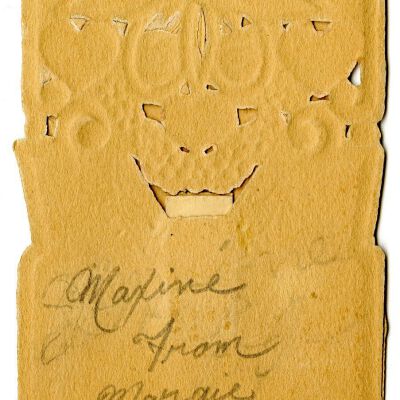 Maxine
From
Margie